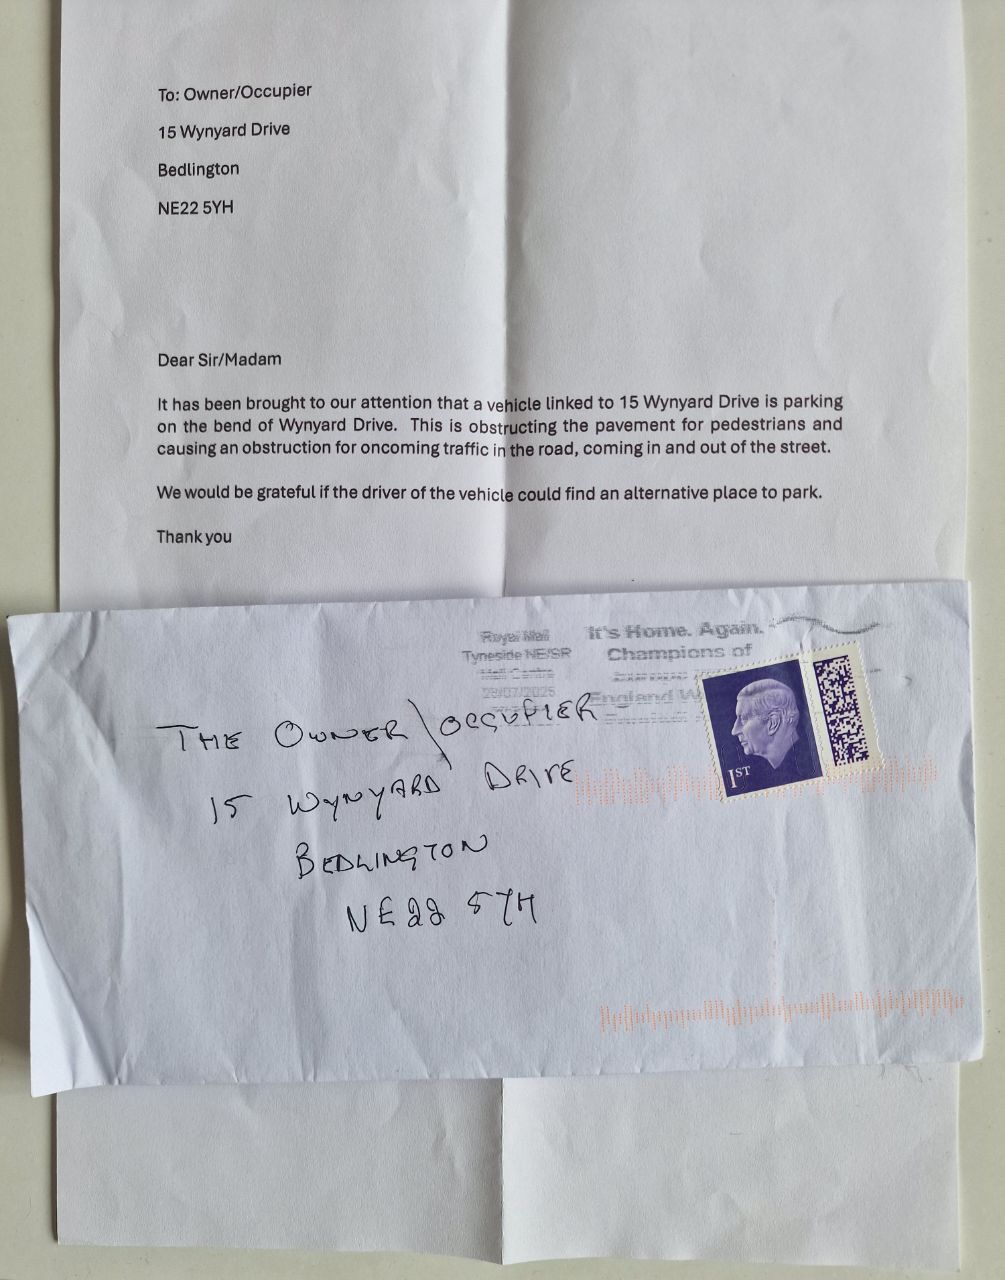 To: Owner/Occupier
15 Wynyard Drive
Bedlington
NE22 5YH
Dear Sir/Madam
It has been brought to our attention that a vehicle linked to 15 Wynyard Drive is parking
on the bend of Wynyard Drive. This is obstructing the pavement for pedestrians and
causing an obstruction for oncoming traffic in the road, coming in and out of the street.
We would be grateful if the driver of the vehicle could find an alternative place to park.
Thank you
Royal Mail
Tyneside NE/SR
Mail Centre
29/07/2025
It's Home. Again.
Champions of
England
1ST
THE OWNER\OCCUPIER
15 WYNYARD DRIVE
BEDLINGTON
NE22 5YH